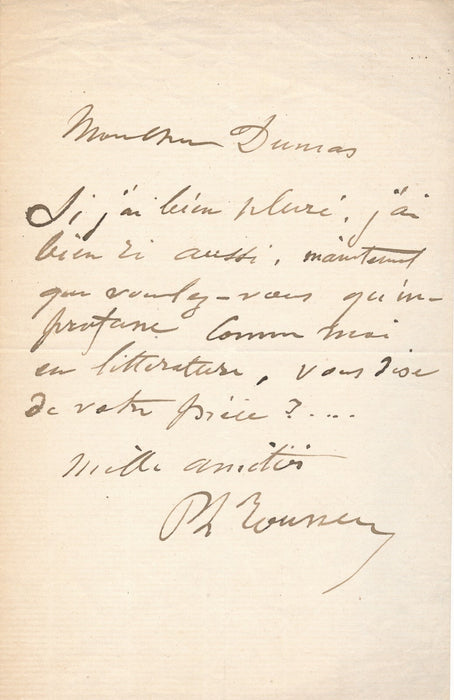 Mon cher Dumas
Si j'ai bien pleuré, j'ai
bien ri aussi, maintenant
que voulez-vous qu'un
profane comme moi
en litterature, vous dise
de votre pièce ? ....
mille amitiés
Ph Rousseau